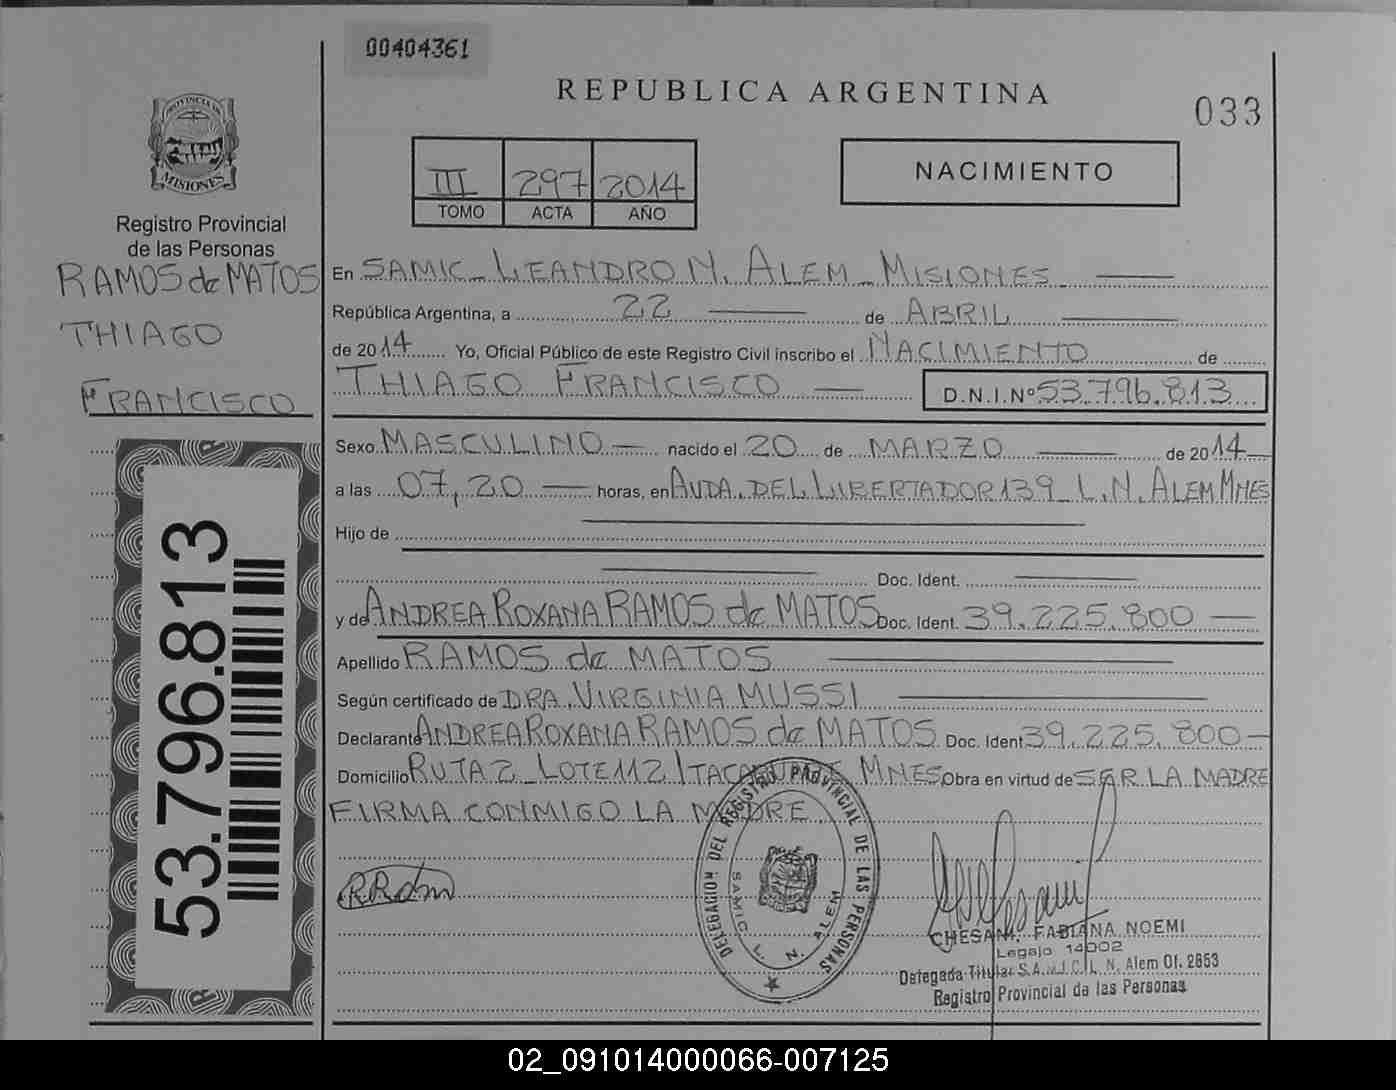 00404361
REPUBLICA ARGENTINA
033
NACIMIENTO
III 297 2014
TOMO ACTA AÑO
PROVINCIA DE
MISIONES
Registro Provincial
de las Personas
RAMOS de MATOS
THIAGO
FRANCISCO
53.796.813
En SAMIC - LEANDRO N. ALEM - MISIONES
República Argentina, a 22 de ABRIL
de 2014 Yo, Oficial Público de este Registro Civil inscribo el NACIMIENTO de
THIAGO FRANCISCO D.N.I.Nº 53.796.813
Sexo MASCULINO nacido el 20 de MARZO de 2014
a las 07,20 horas, en AVDA. DEL LIBERTADOR 139 - L.N. ALEM MNES
Hijo de
Doc. Ident.
y de ANDREA ROXANA RAMOS de MATOS Doc. Ident. 39.225.800
Apellido RAMOS de MATOS
Según certificado de DRA. VIRGINIA MUSSI
Declarante ANDREA ROXANA RAMOS de MATOS Doc. Ident 39.225.800
Domicilio RUTA 2 - LOTE 112 MNES Obra en virtud de SER LA MADRE
FIRMA CONMIGO LA MADRE.
DELEGACION DEL REGISTRO PROVINCIAL DE LAS PERSONAS
SAMIC L. N. ALEM
CHESANI, FABIANA NOEMI
Legajo 14002
Delegada Titular S.A.M.I.C. L. N. Alem Of. 2653
Registro Provincial de las Personas
02_091014000066-007125